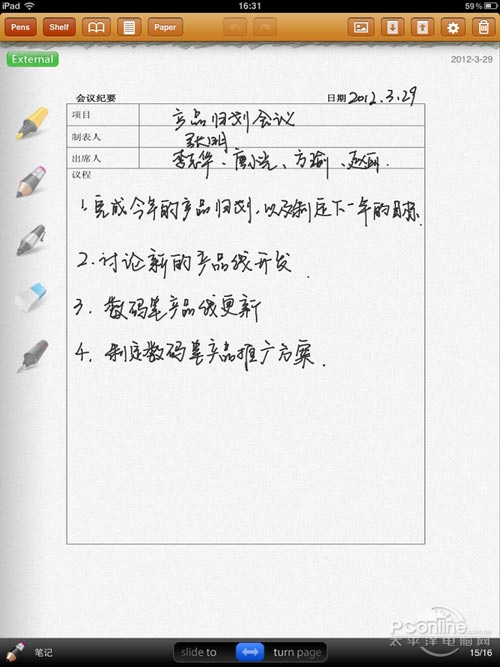 iPad 16:31 59%
Pens Shelf Paper
External 2012-3-29
会议纪要 日期 2012.3.29
项目 产品归划会议
制表人 张明
出席人 李志华、唐小光、方瑜、赵丽.
议程
1.完成今年的产品归划,以及制定下一年的目标.
2.讨论新的产品线开发.
3.数码笔产品线更新
4.制定数码笔产品推广方案.
PConline
太平洋电脑网
笔记 slide to turn page 15/16